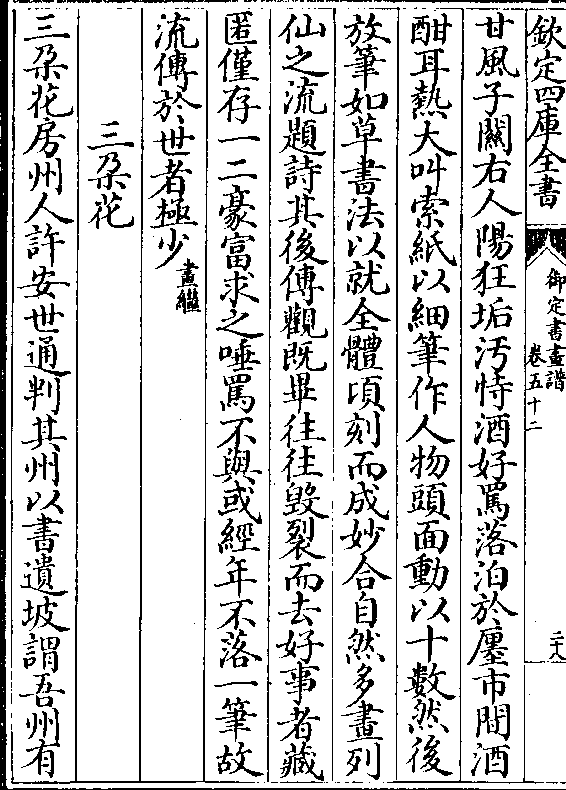 欽定四庫全書
御定書畫譜
卷五十二
二十八
甘風子關右人陽狂垢汚恃酒好罵落泊於廛市間酒
酣耳熱大叫索紙以細筆作人物頭面動以十數然後
放筆如草書法以就全體頃刻而成妙合自然多畫列
仙之流題詩其後傳觀既畢往往毁裂而去好事者藏
匿僅存一二豪富求之唾罵不與或經年不落一筆故
流傳於世者極少畫繼
三朶花
三朶花房州人許安世通判其州以書遺坡謂吾州有